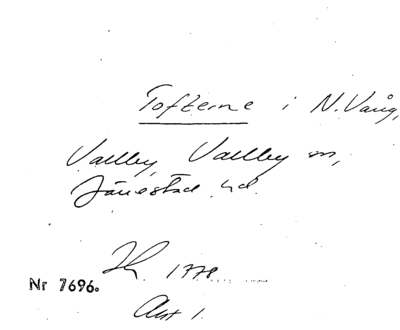 Tofterne i N. Vång,
Vallby, Vallby sn,
Järrestad hd.
1778
Nr 7696.
Akt 1.